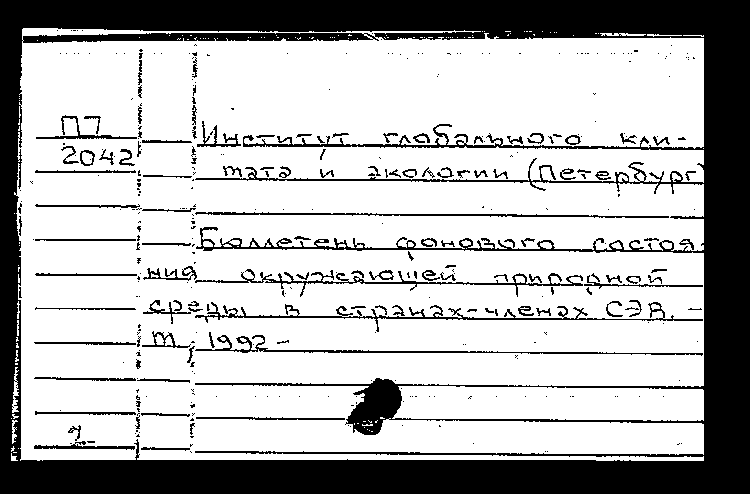 ПП
2042
Институт глобального кли-
мата и экологии (Петербург)
Бюллетень фонового состоя-
ния окружающей природной
среды в странах-членах СЭВ. -
М, 1992 -